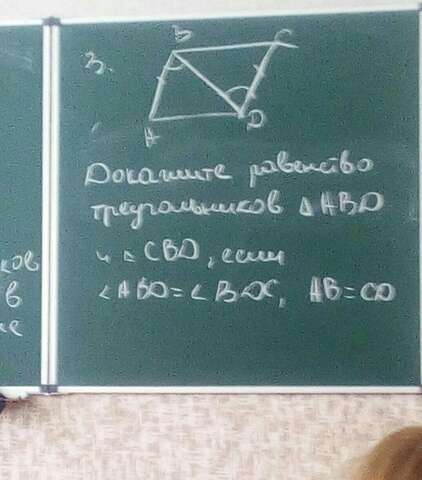 3.
B
C
A
D
Докажите равенство
треугольников △ABD
и △CBD, если
∠ABD=∠BDC, AB=CD
ков
в